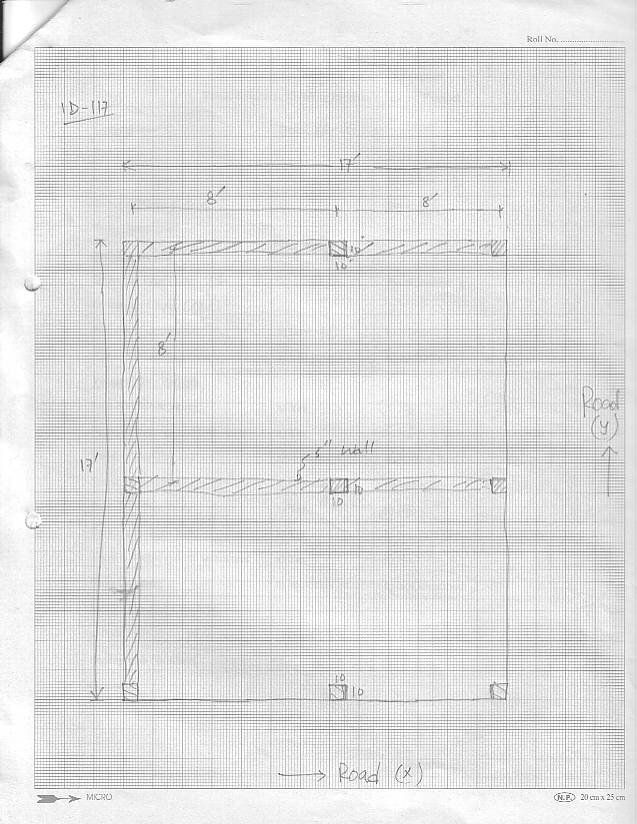 Roll No. ....................
ID-117
17'
8' 8'
10"
10"
8'
Road
(y)
5" wall
17'
10
10
10
10
Road (x)
MICRO
N.P. 20 cm x 25 cm